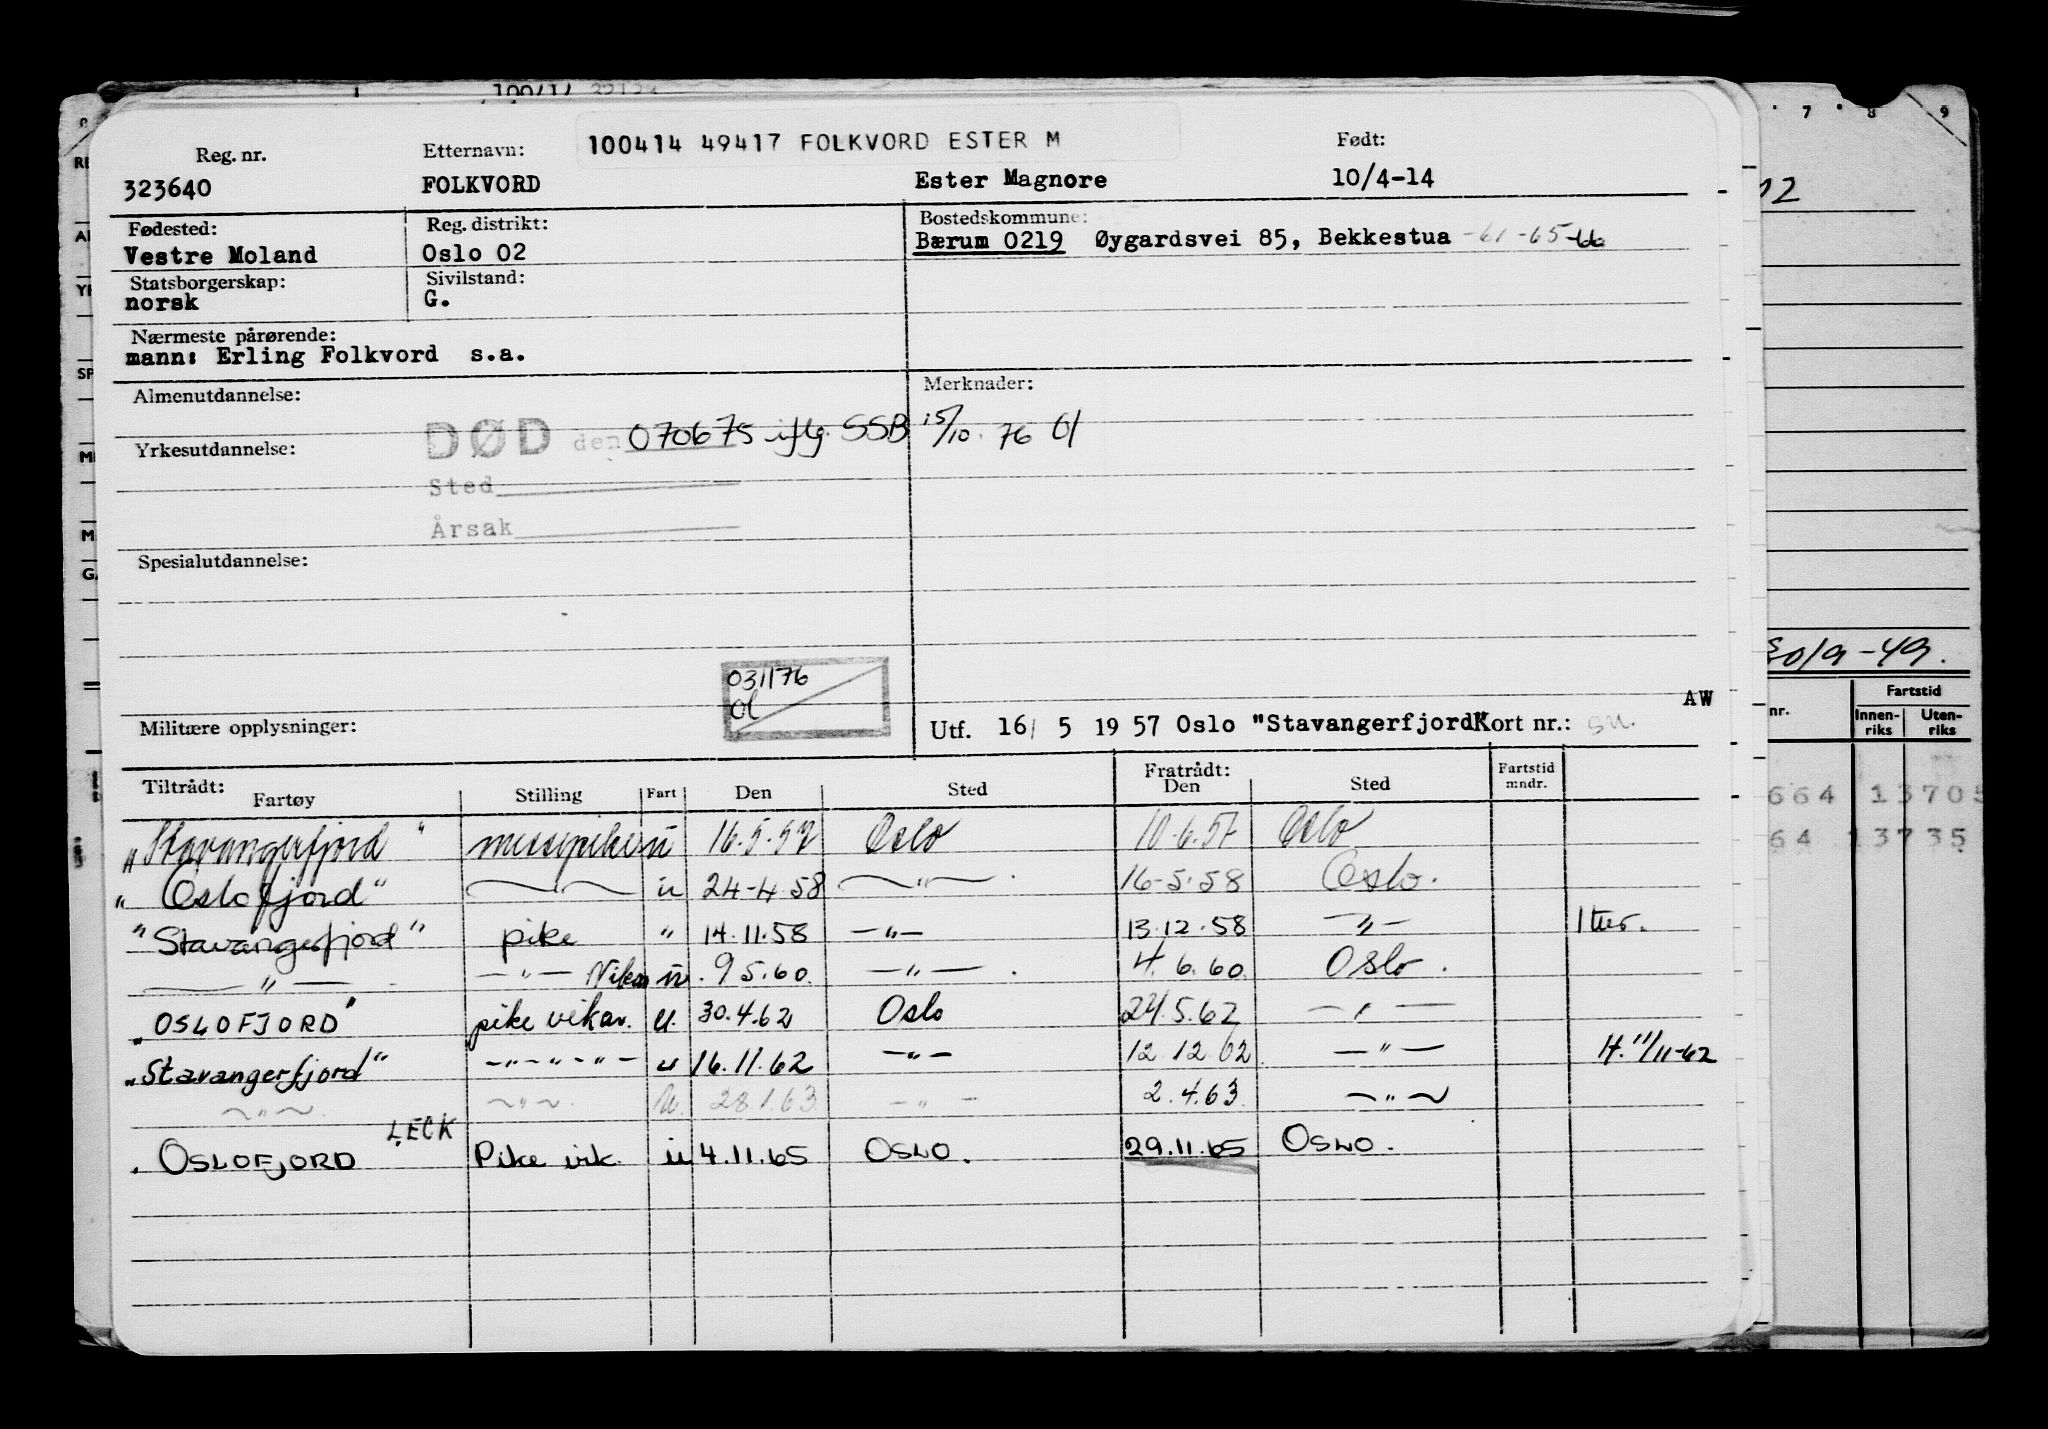 100414 49417 FOLKVORD ESTER M
Reg. nr. Etternavn: Født:
323640 FOLKVORD Ester Magnore 10/4-14
Fødested: Reg. distrikt: Bostedskommune:
Vestre Moland Oslo 02 Bærum 0219 Øygardsvei 85, Bekkestua -61-65-66
Statsborgerskap: Sivilstand:
norsk G.
Nærmeste pårørende:
mann: Erling Folkvord s.a.
Almenutdannelse: Merknader:
Yrkesutdannelse: DØD den 070675 iflg. SSB 15/10. 76 Ol
Sted
Årsak
Spesialutdannelse:
031176
Ol
AW
Militære opplysninger: Utf. 16/ 5 19 57 Oslo "Stavangerfjord" Kort nr.:
Tiltrådt: Fratrådt:
Fartøy Stilling Fart Den Sted Den Sted Fartstid mndr.
"Stavangerfjord" messepike u 16.5.57 Oslo 10.6.57 Oslo
"Oslofjord" —"— u 24-4-58 —"— 16-5-58 Oslo.
"Stavangerfjord" pike " 14.11.58 —"— 13.12.58 —"— 1 tur.
—"— —"— Vikar u. 9.5.60. —"— 4.6.60. Oslo.
"OSLOFJORD" pike vikar. u. 30.4.62 Oslo 24.5.62 —"—
"Stavangerfjord" —"—"—"— u 16.11.62 —"— 12.12.62 —"— H. 11/11-62
—"— —"— u. 28.1.63 —"— 2.4.63. —"—
LECK
"OSLOFJORD Pike vik. u 4.11.65 OSLO. 29.11.65 OSLO.
7 8 9
30/9-49.
nr. Fartstid
Innen-riks Uten-riks
664 13705
64 13735